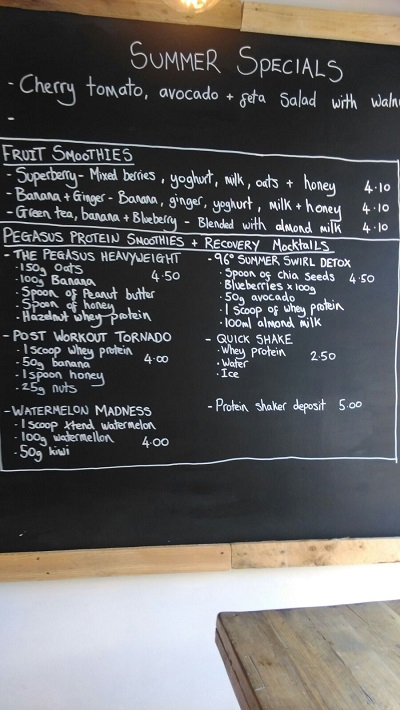 SUMMER SPECIALS
- Cherry tomato, avocado + feta salad with
-
FRUIT SMOOTHIES
- Superberry - Mixed berries, yoghurt, milk, oats + honey 4.10
- Banana + Ginger - Banana, ginger, yoghurt, milk + honey 4.10
- Green tea, banana + Blueberry - Blended with almond milk 4.10
PEGASUS PROTEIN SMOOTHIES + RECOVERY MOCKTAILS
- THE PEGASUS HEAVYWEIGHT
· 150g oats
· 100g Banana 4.50
· Spoon of Peanut butter
· Spoon of honey
· Hazelnut whey protein
- POST WORKOUT TORNADO
· 1 scoop whey protein
· 50g banana 4.00
· 1 spoon honey
· 25g nuts
- WATERMELON MADNESS
· 1 scoop xtend watermelon
· 100g watermellon 4.00
· 50g kiwi
- 96° SUMMER SWIRL DETOX
· Spoon of chia seeds 4.50
· Blueberries x 100g
· 50g avocado
· 1 scoop of whey protein
· 100ml almond milk
- QUICK SHAKE
· Whey protein 2.50
· Water
· Ice
- Protein shaker deposit 5.00